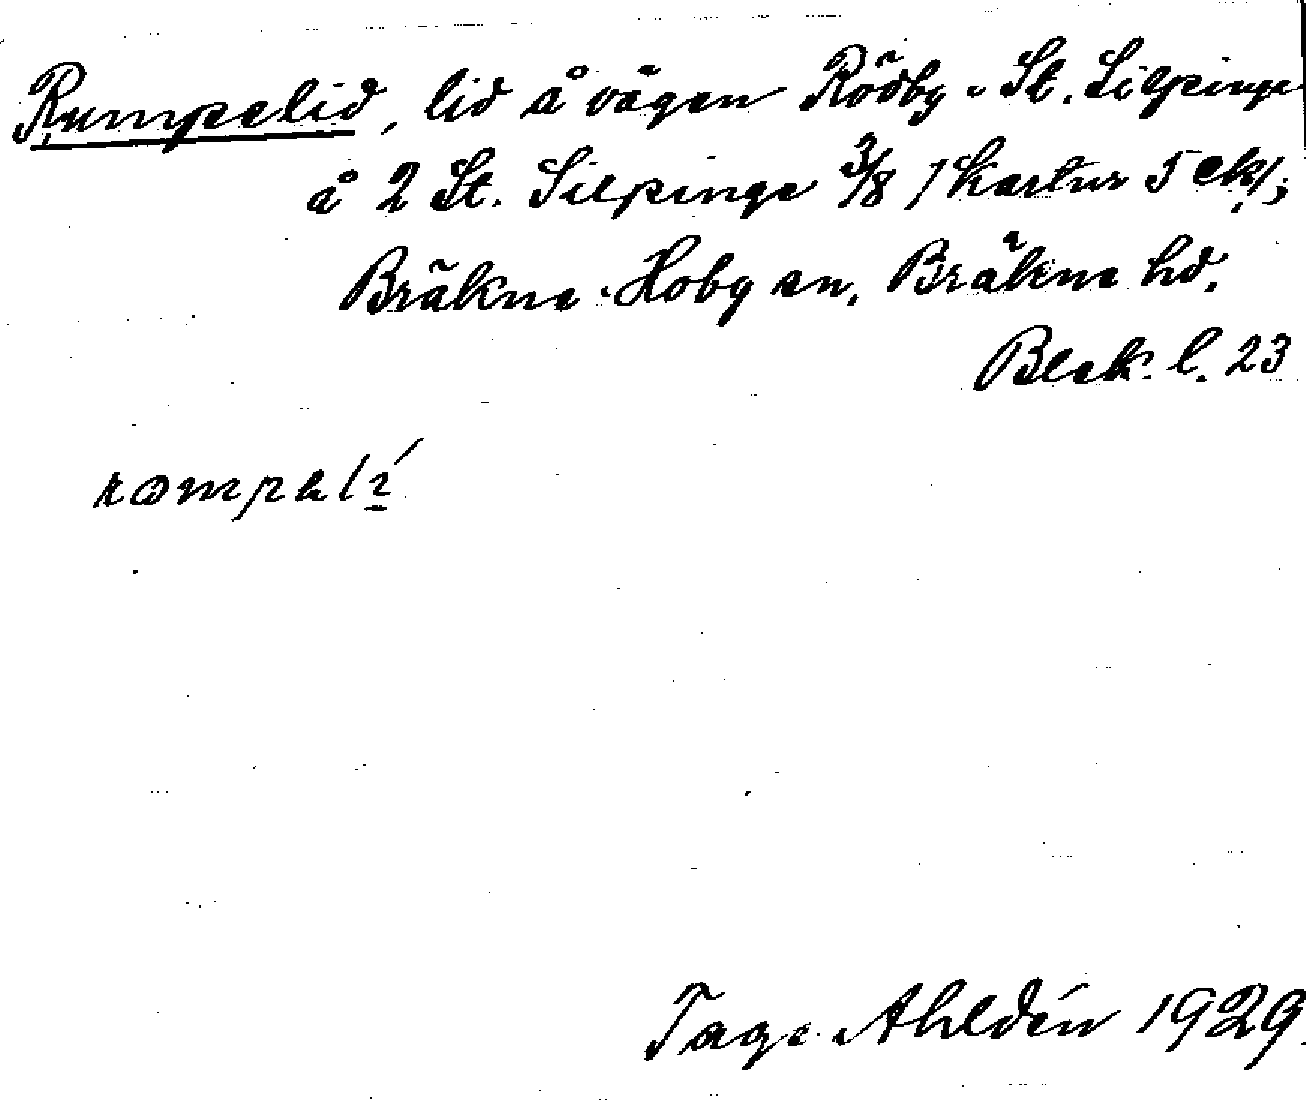 Rumpelid, lid å vägen Rödby - St. Silpinge
å 2 St. Silpinge 3/8 /Kartur 5 ek/;
Bräkne-Hoby sn, Bräkne hd.
Blek. l. 23
rompalí
Tage Ahldén 1929.